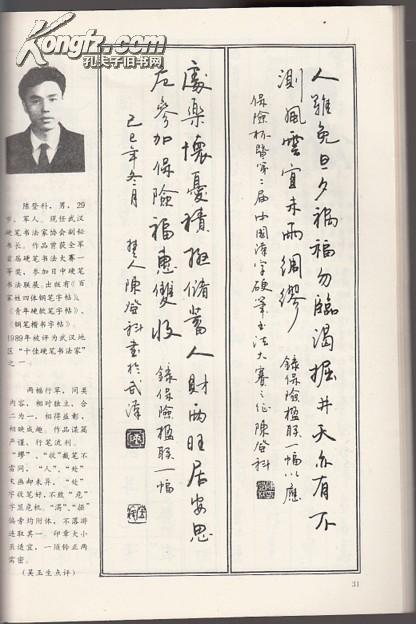 Kongfz.com
孔夫子旧书网
人难免旦夕祸福勿临渴掘井天亦有不
测风云宜未雨绸缪
录保险楹联一幅以应
保险杯第二届中国汉字硬笔书法大赛之征陈登科
处乐怀忧积极储蓄人财两旺居安思
危参加保险福惠双收
录保险楹联一幅
己巳年冬月
楚人陈登科书于武汉
陈登科，男，29
岁，军人。现任武汉
硬笔书法家协会副秘
书长。作品曾获全军
首届硬笔书法大赛一
等奖，参加日中硬笔
书法联展。出版有《百
家姓四体钢笔字帖》、
《青年硬软笔字帖》、
《钢笔楷书字帖》。
1989年被评为武汉地
区“十佳硬笔书法家”
之一。
两幅行草，同类
内容，相对独立，合
二为一，相得益彰，
相映成趣。作品谋篇
严谨，行笔流利。
“缪”、“收”截笔不
雷同，“人”、“处”
字收笔好，不致“危”
字显危机。“渴”、“掘”
偏旁均附体，不落游
进取其一。印章大小
玉适宜，一须铃正两
需密。
（吴玉生点评）
31